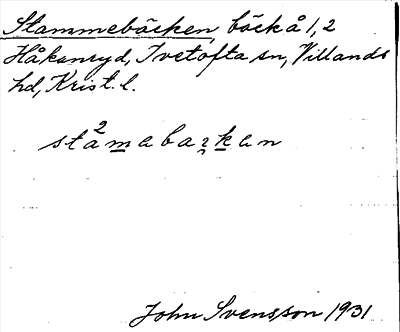 Stammebäcken, bäck å 1, 2
Håkanryd, Ivetofta sn, Villands
hd, Krist. l.
sta²mabaꭋkan
John Svensson 1931